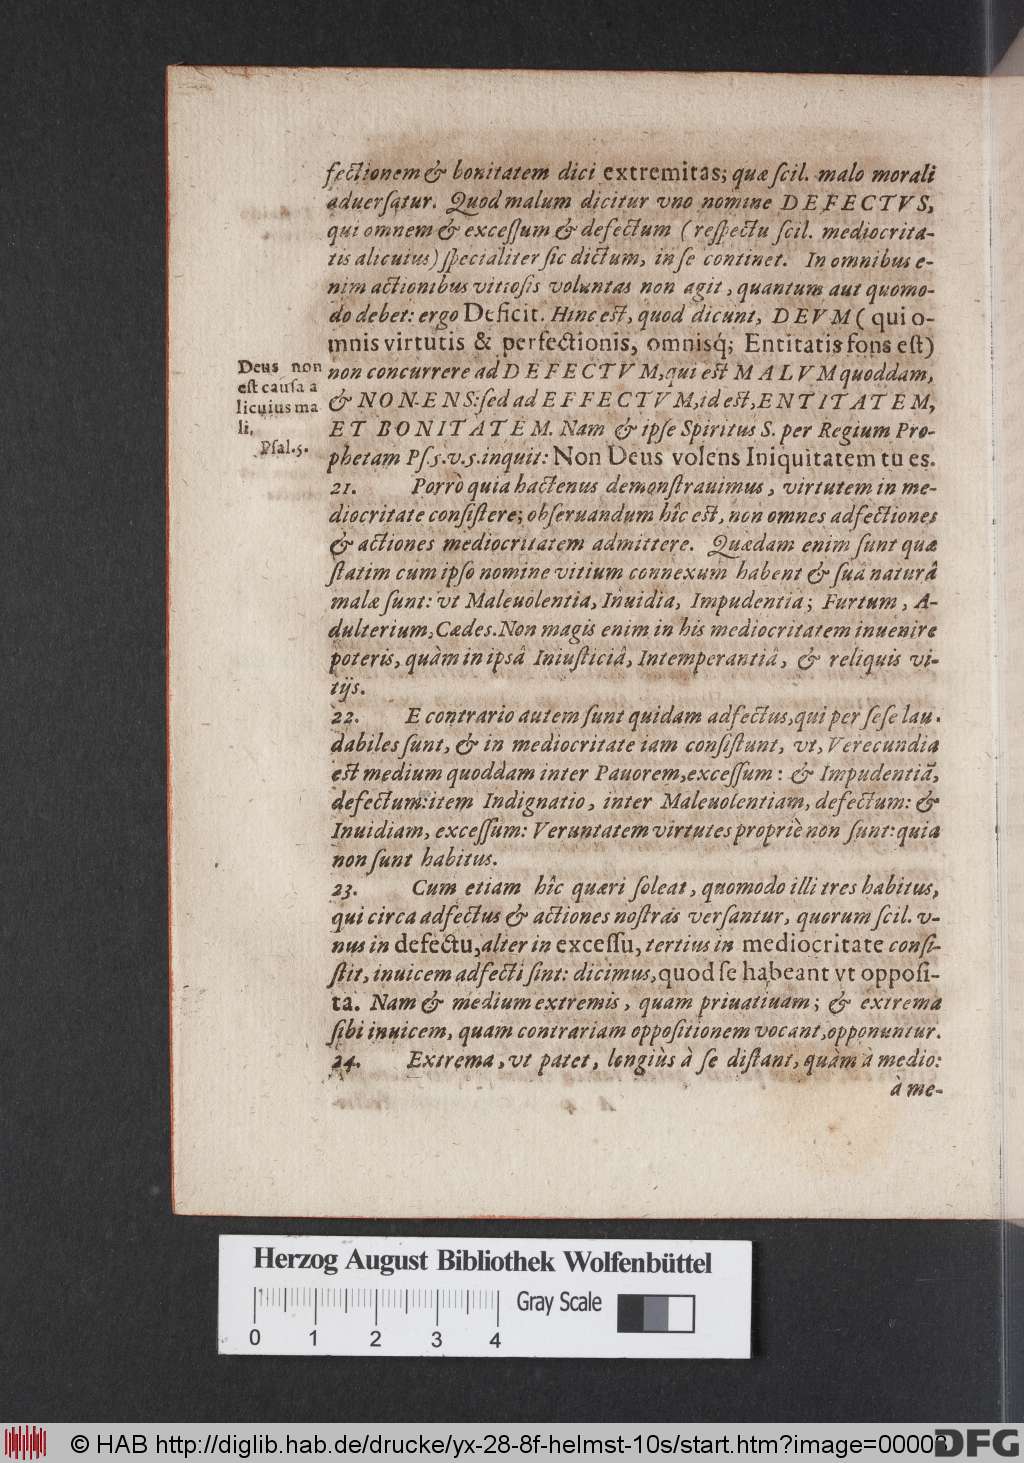 fectionem & bonitatem dici extremitas; quæ ſcil. malo morali
aduerſatur. Quod malum dicitur vno nomine DEFECTVS,
qui omnem & exceſſum & defectum (reſpectu ſcil. mediocrita-
tis alicuius) ſpecialiter ſic dictum, in ſe continet. In omnibus e-
nim actionibus vitioſis voluntas non agit, quantum aut quomo-
do debet: ergo Deficit. Hinc eſt, quod dicunt, DEVM (qui o-
mnis virtutis & perfectionis, omnisq́; Entitatis fons eſt)
non concurrere ad DEFECTVM, qui eſt MALVM quoddam,
& NON-ENS: ſed ad EFFECTVM, id eſt, ENTITATEM,
ET BONITATEM. Nam & ipſe Spiritus S. per Regium Pro-
phetam Pſ. 5. v. 5. inquit: Non Deus volens Iniquitatem tu es.
Deus non
eſt cauſa a
licuius ma
li.
Pſal. 5.
21. Porrò quia hactenus demonſtrauimus, virtutem in me-
diocritate conſiſtere; obſeruandum hîc eſt, non omnes adfectiones
& actiones mediocritatem admittere. Quædam enim ſunt quæ
ſtatim cum ipſo nomine vitium connexum habent & ſuâ naturâ
malæ ſunt: vt Maleuolentia, Inuidia, Impudentia; Furtum, A-
dulterium, Cædes. Non magis enim in his mediocritatem inuenire
poteris, quàm in ipſâ Iniuſticiâ, Intemperantiâ, & reliquis vi-
tijs.
22. E contrario autem ſunt quidam adfectus, qui per ſeſe lau-
dabiles ſunt, & in mediocritate iam conſiſtunt, vt, Verecundia
eſt medium quoddam inter Pauorem, exceſſum: & Impudentiã,
defectum: item Indignatio, inter Maleuolentiam, defectum: &
Inuidiam, exceſſum: Veruntatem virtutes propriè non ſunt: quia
non ſunt habitus.
23. Cum etiam hîc quæri ſoleat, quomodo illi tres habitus,
qui circa adfectus & actiones noſtras verſantur, quorum ſcil. v-
nus in defectu, alter in exceſſu, tertius in mediocritate conſi-
ſtit, inuicem adfecti ſint: dicimus, quod ſe habeant vt oppoſi-
ta. Nam & medium extremis, quam priuatiuam; & extrema
ſibi inuicem, quam contrariam oppoſitionem vocant, opponuntur.
24. Extrema, vt patet, longiùs à ſe diſtant, quàm à medio:
à me-
Herzog August Bibliothek Wolfenbüttel
Gray Scale
0 1 2 3 4
© HAB http://diglib.hab.de/drucke/yx-28-8f-helmst-10s/start.htm?image=00008
DFG